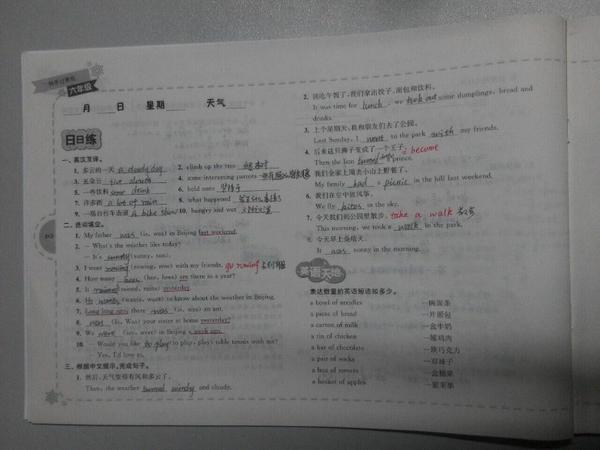 六年级
月 日 星期 天气
日日练
一、英汉互译。
1. 多云的一天 a cloudy day 2. climb up the tree
3. 五朵云 five clouds 4. some interesting parrots
5. 一些饮料 some drink 6. hold onto
7. 许多雨 a lot of rain 8. what happened
9. 一场自行车表演 a bike show 10. hungry and wet
二、选词填空。
1. My father was (is, was) in Beijing last weekend.
2. — What's the weather like today?
— It's sunny (sunny, sun).
3. I went rowing (rowing, row) with my friends. go rowing
4. How many (hour, hours) are there in a year?
5. It rained (rained, rains) yesterday.
6. He wants (wants, want) to know about the weather in Beijing.
7. Long long ago, there was (is, was) an ant.
8. Was (Is, Was) your sister at home yesterday?
9. We went (go, went) to Beijing a week ago.
10. — Would you like to play (to play, play) table tennis with me?
— Yes, I'd love to.
三、根据中文提示,完成句子。
1. 然后,天气变得有风和多云了。
Then, the weather turned windy and cloudy.
2. 该吃午饭了,我们拿出饺子、面包和饮料。
It was time for lunch, we took out some dumplings, bread and
drinks.
3. 上个星期天,我和朋友们去了公园。
Last Sunday, I went to the park with my friends.
4. 后来这只狮子变成了一个王子。 become
Then the lion turned prince.
5. 我们全家上周去小山上野餐了。
My family had a picnic in the hill last weekend.
6. 我们在空中放风筝。
We fly kites in the sky.
7. 今天我们到公园里散步。 take a walk
This morning, we took a walk in the park.
8. 今天早上是晴天。
It was sunny in the morning.
英语天地
表达数量的英语短语知多少。
a bowl of noodles 一碗面条
a piece of bread 一片面包
a carton of milk 一盒牛奶
a tin of chicken 一罐鸡肉
a bar of chocolate 一块巧克力
a pair of socks 一双袜子
a box of sweets 一盒糖果
a basket of apples 一篮苹果